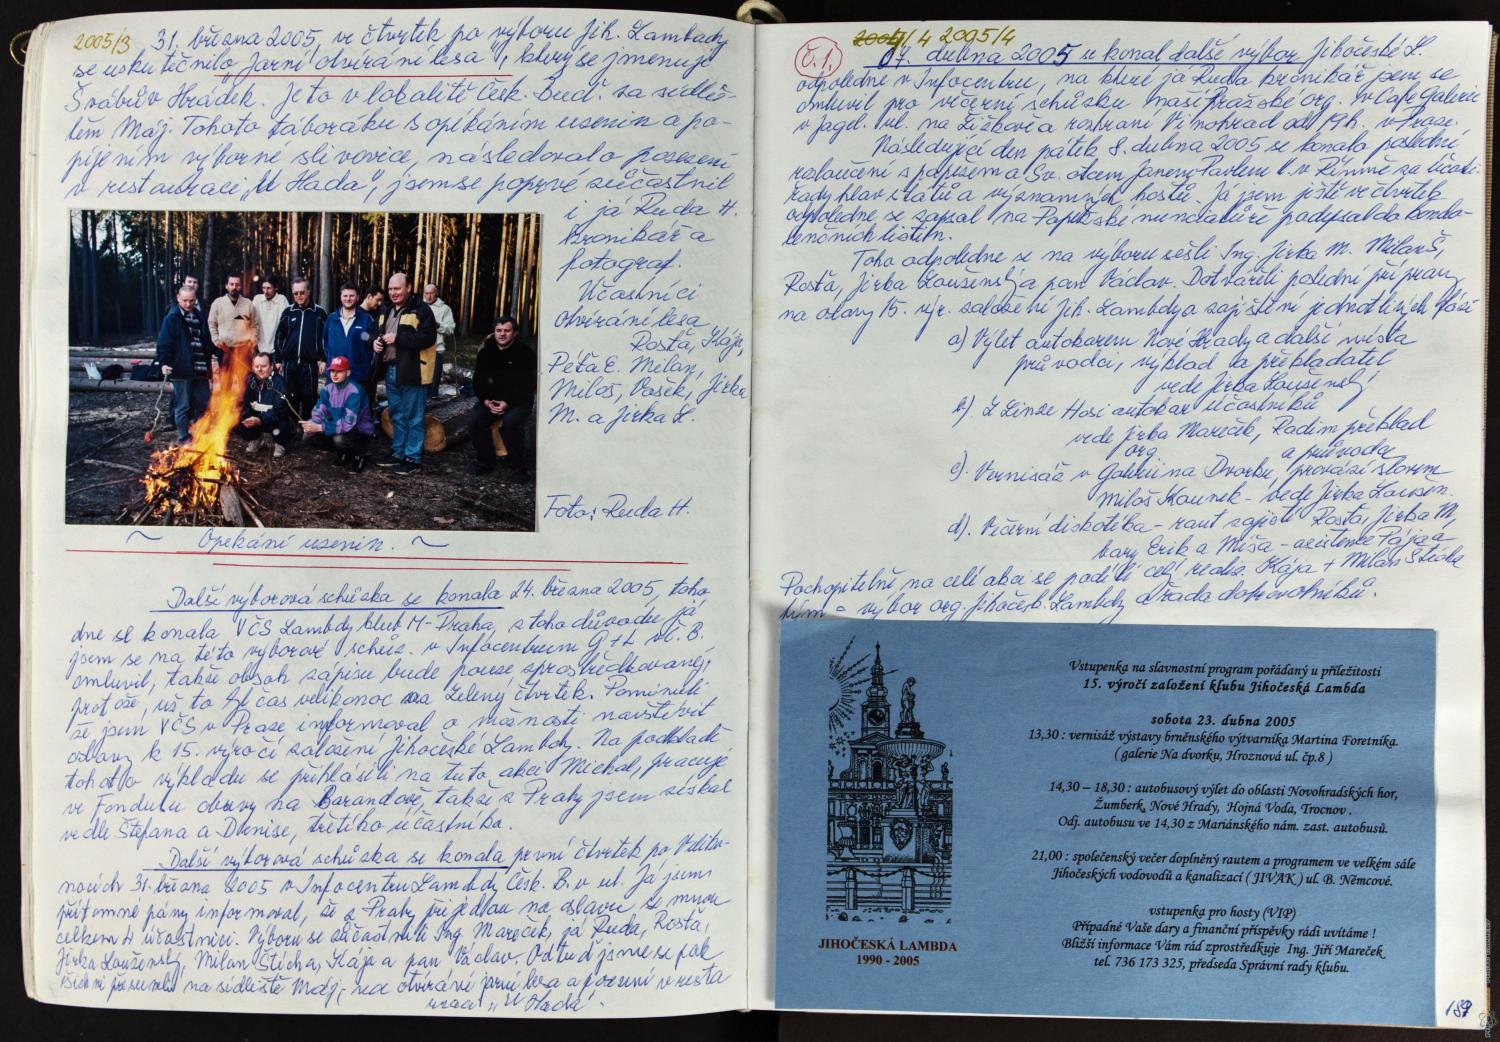 2005/3 31. března 2005, ve čtvrtek po výboru Jih. Lambady
se uskutečnilo „Jarní otvírání lesa", který se jmenuje
Švábův Hrádek. Je to v lokalitě Česk. Buď. za sídliš-
těm Máj. Tohoto táboráku s opékáním uzenin a po-
píjením výborné slivovice, následovalo posezení
v restauraci „U Hada", jsem se poprvé zúčastnil
i já Ruda H.
kronikář a
fotograf.
Účastníci
otvírání lesa
Rosťa, Kája,
Péťa E. Milan,
Miloš, Vašek, Jirka
M. a Jirka L.
Foto: Ruda H.
~ Opékání uzenin. ~
Další výborová schůzka se konala 24. března 2005, toho
dne se konala VČS Lambdy klub M-Praha, z toho důvodu já
jsem se na této výborové schůz. v Infocentrum G+L v Č. B.
omluvil, takže obsah zápisu bude pouze zprostředkovaný,
protože, už to byl čas velikonoc na Zelený čtvrtek. Pominuli
že jsem VČS v Praze informoval o možnosti navštívit
oslavy k 15. výročí založení Jihočeské Lambdy. Na podkladě
tohoto výkladu se přihlásili na tuto akci Michal, pracuje
ve Fondusu obuvy na Barandově, takže z Prahy jsem získal
vedle Štefana a Denise, třetího účastníka.
Další výborová schůzka se konala první čtvrtek po Veliko-
nocích 31. března 2005 v Infocentru Lambdy Česk. B. v ul. Já jsem
přítomné pány informoval, že z Prahy přijedou na oslavu se mnou
celkem 4 účastníci. Výboru se zúčastnili Ing Mareček, já Ruda, Rosťa,
Jirka Louženský, Milan Šticha, Kája a pan Václav. Odtud jsme se pak
všichni přesunuli na sídliště Máj, na otvírání jarní lesa a posezení v resta
uraci „U Hada".
č. 1. 2005/4 2005/4
07. dubna 2005 se konal další výbor Jihočeské L.
odpoledne v Infocentru, na které já Ruda kronikář jsem se
omluvil pro večerní schůzku naší Pražské org. v Café Galerie
v Jagel. ul. na Žižkově a rozhraní Vinohrad od 19h. v Praze.
Následující den pátek 8. dubna 2005 se konalo poslední
rozloučení s papežem a Sv. otcem Janem Pavlem II. v Římně za účasti
řady hlav států a významných hostů. Já jsem ještě ve čtvrtek
odpoledne se zapsal na Papežské nunciatuře podepsal do kondo-
lenčních listin.
Toho odpoledne se na výboru sešli Ing. Jirka M. Milan Š,
Rosťa, Jirka Loužensky a pan Václav. Dotvářeli poslední přípravy
na oslavy 15. výr. založení Jih. Lambdy a zajištění jednotlivých fází
a) Výlet autobusem Nové Hrady a další místa
průvodci, výklad a překladatel
vede Jirka Lousenský
b). Z Linze Hosi autokar účastníků
vede Jirka Mareček, Radim překlad
org. a průvodce
c) Vernisáž v Galerii na Dvorku, provází slovem
Miloš Kounek - vede Jirka Loužen.
d). Večerní diskotéka - raut zajistí Rosťa, Jirka M,
bary Erik a Míša - asistence Pájaa
Pochopitelně na celé akci se podílí celý realiz. Kája + Milan Šticha
tým - výbor org. Jihočesk. Lambdy a řada dobrovolníků.
Vstupenka na slavnostní program pořádaný u příležitosti
15. výročí založení klubu Jihočeská Lambda
sobota 23. dubna 2005
13,30 : vernisáž výstavy brněnského výtvarníka Martina Foretníka.
( galerie Na dvorku, Hroznová ul. čp.8 )
14,30 – 18,30 : autobusový výlet do oblasti Novohradských hor,
Žumberk, Nové Hrady, Hojná Voda, Trocnov .
Odj. autobusu ve 14,30 z Mariánského nám. zast. autobusů.
21,00 : společenský večer doplněný rautem a programem ve velkém sále
Jihočeských vodovodů a kanalizací ( JIVAK ) ul. B. Němcové.
vstupenka pro hosty (VIP)
Případné Vaše dary a finanční příspěvky rádi uvítáme !
Bližší informace Vám rád zprostředkuje Ing. Jiří Mareček
tel. 736 173 325, předseda Správní rady klubu.
JIHOČESKÁ LAMBDA
1990 - 2005
189